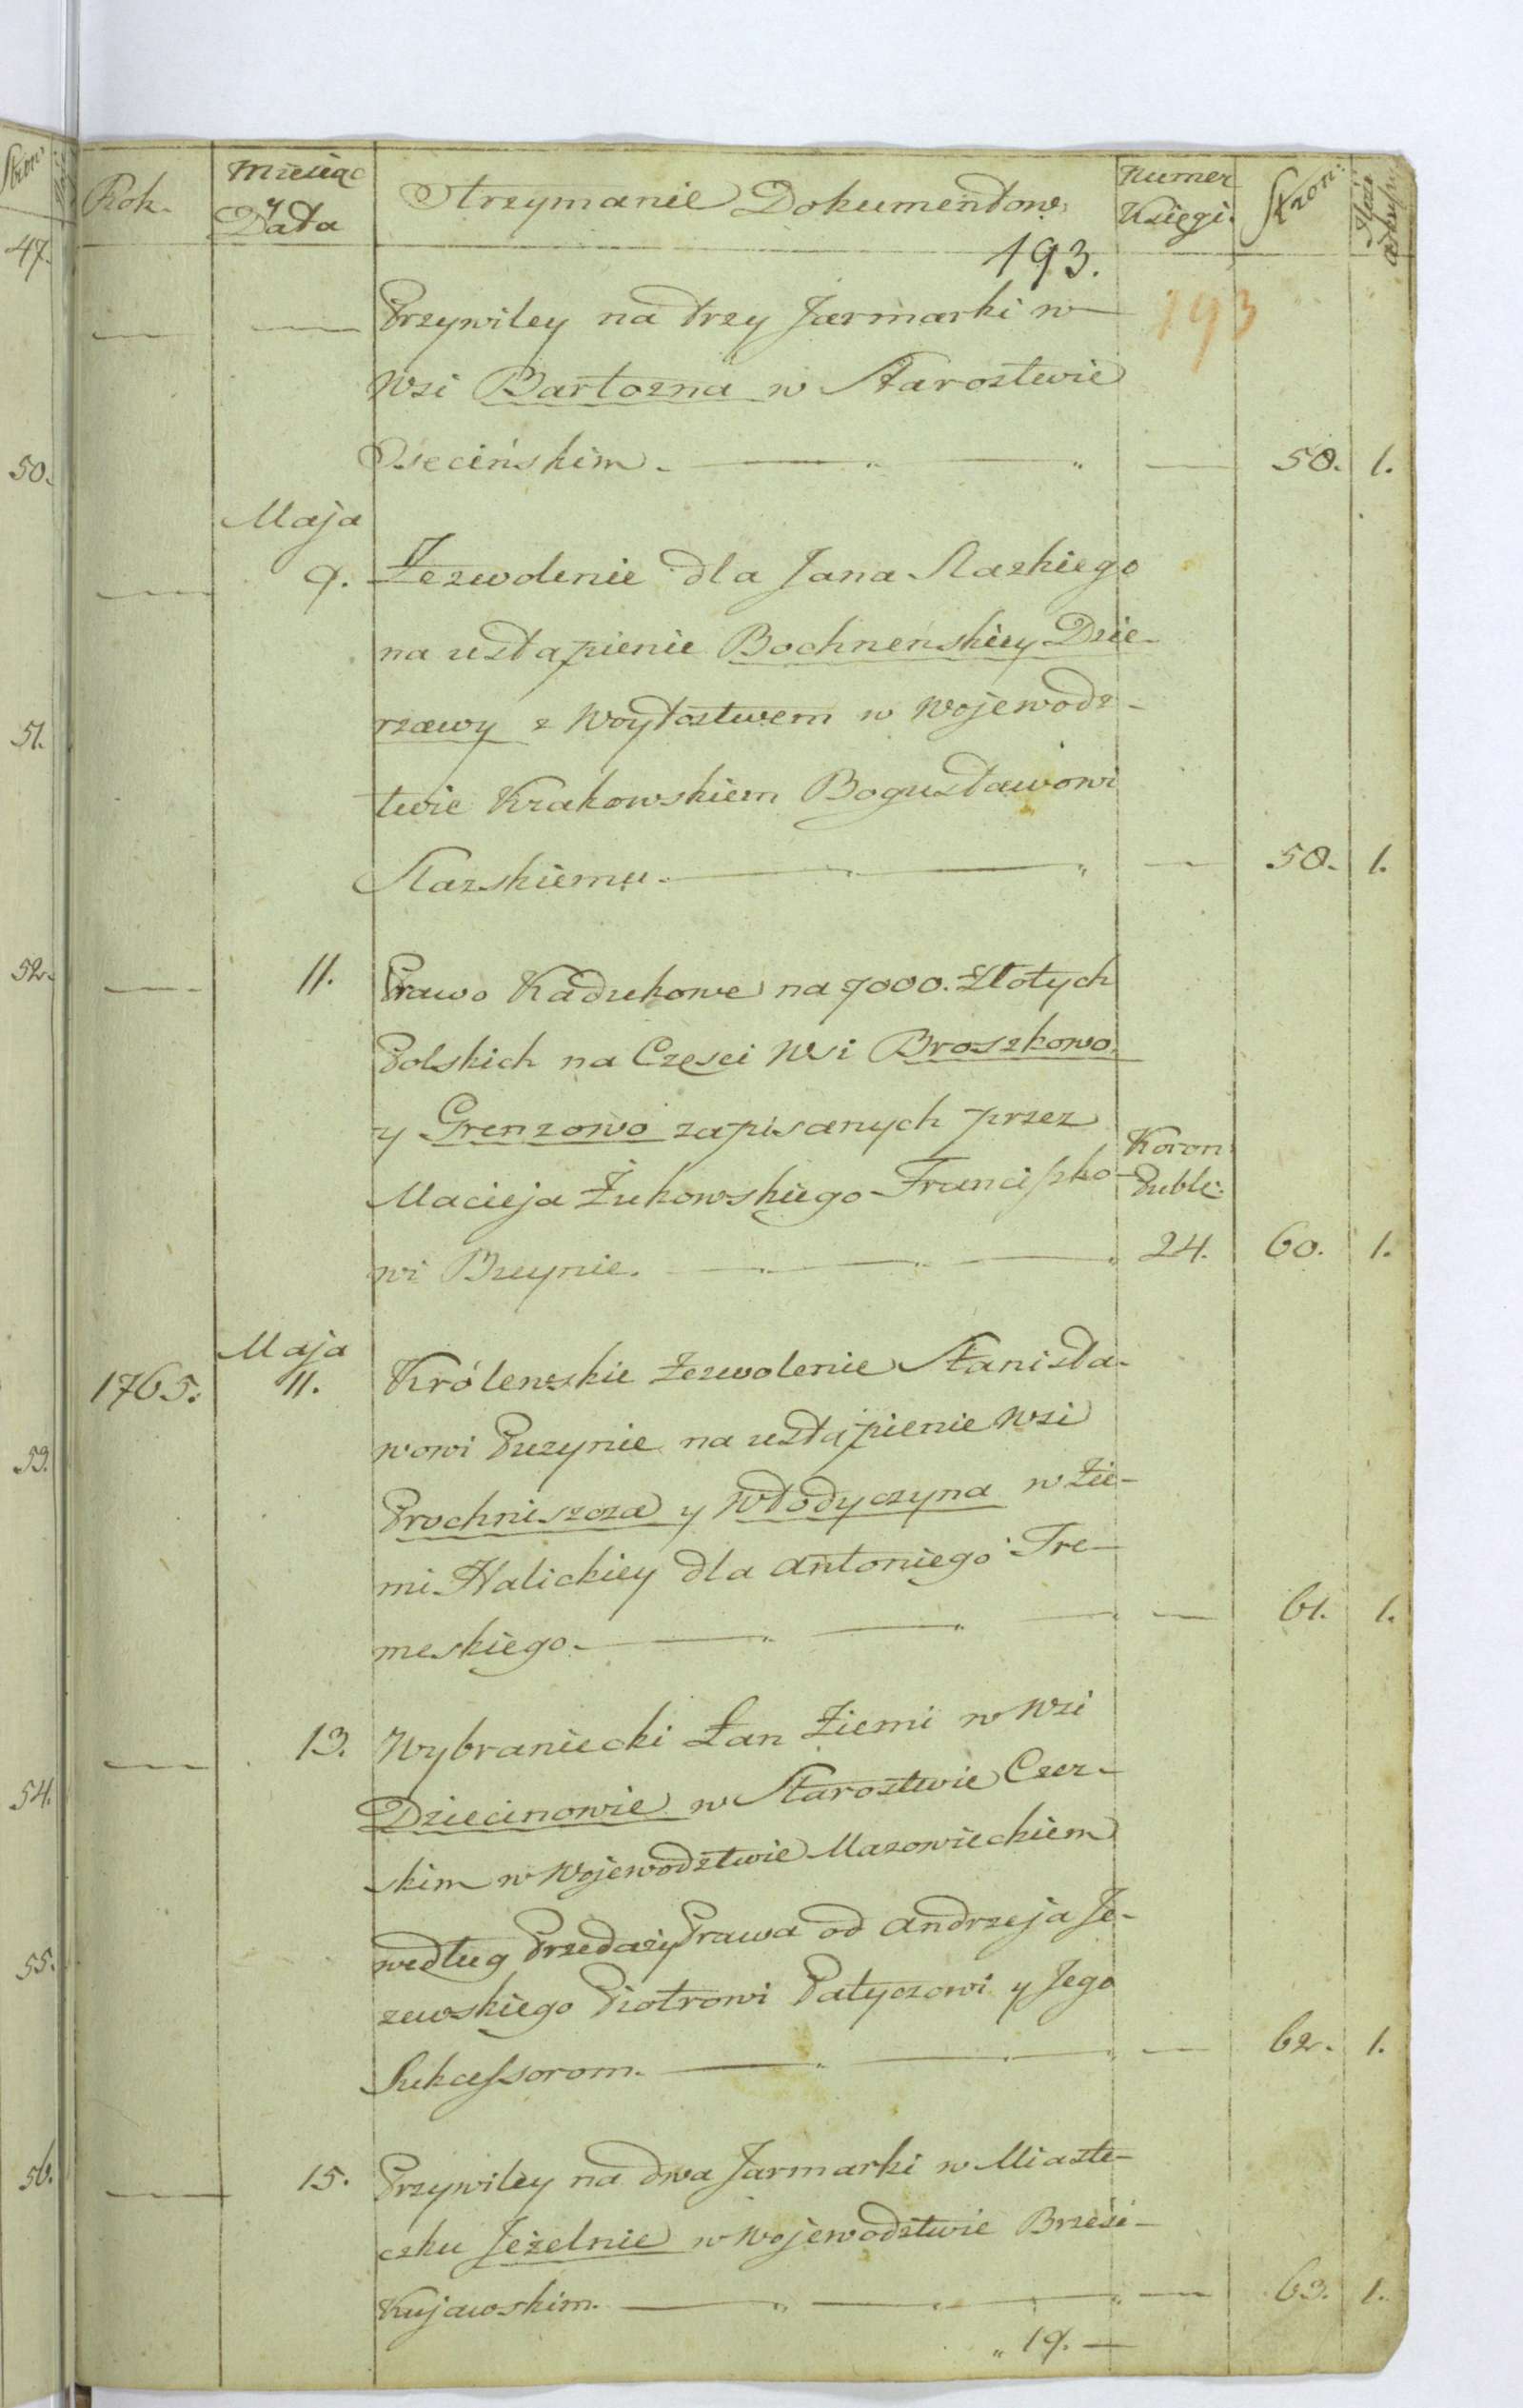 Stron:
47.
50.
51.
52.
53.
54.
55.
56.
Rok. Miesiąc y Data Otrzymanie Dokumentow. Numer Księgi. Stron:
193.
193
Przywiley na trzy Jarmarki w
Wsi Bartozna w Starostwie
Osecińskim. 58. 1.
Maja
9. Zezwolenie dla Jana Slaskiego
na ustąpienie Bochneńskiey Dzie-
rzawy z Woytostwem w Wojewodz-
twie Krakowskiem Bogusławowi
Slaskiemu. 58. 1.
11. Prawo Kadukowe na 7000. Złotych
Polskich na Częsci Wsi Broszkowo
y Grenzowo zapisanych przez
Macieja Żukowskiego Franciszko- Koron: Publi:
wi Breynie. 24. 60. 1.
Maja
1765. 11. Królewskie Zezwolenie Stanisła-
wowi Puzynie na ustąpienie Wsi
Prochniszcza y Włodyczyna w Zie-
mi Halickiey dla Antoniego Tre-
meskiego. 61. 1.
13. Wybraniecki Łan Ziemi w Wsi
Dziecinowie w Starostwie Czer-
skim w Wojewodztwie Mazowieckiem
według Przedaży Prawa od Andrzeja Je-
zewskiego Piotrowi Patyczowi y Jego
Sukcessorom. 62. 1.
15. Przywiley na dwa Jarmarki w Miaste-
czku Jeżelnie w Wojewodztwie Brześć-
Kujawskim. 63. 1.
19.